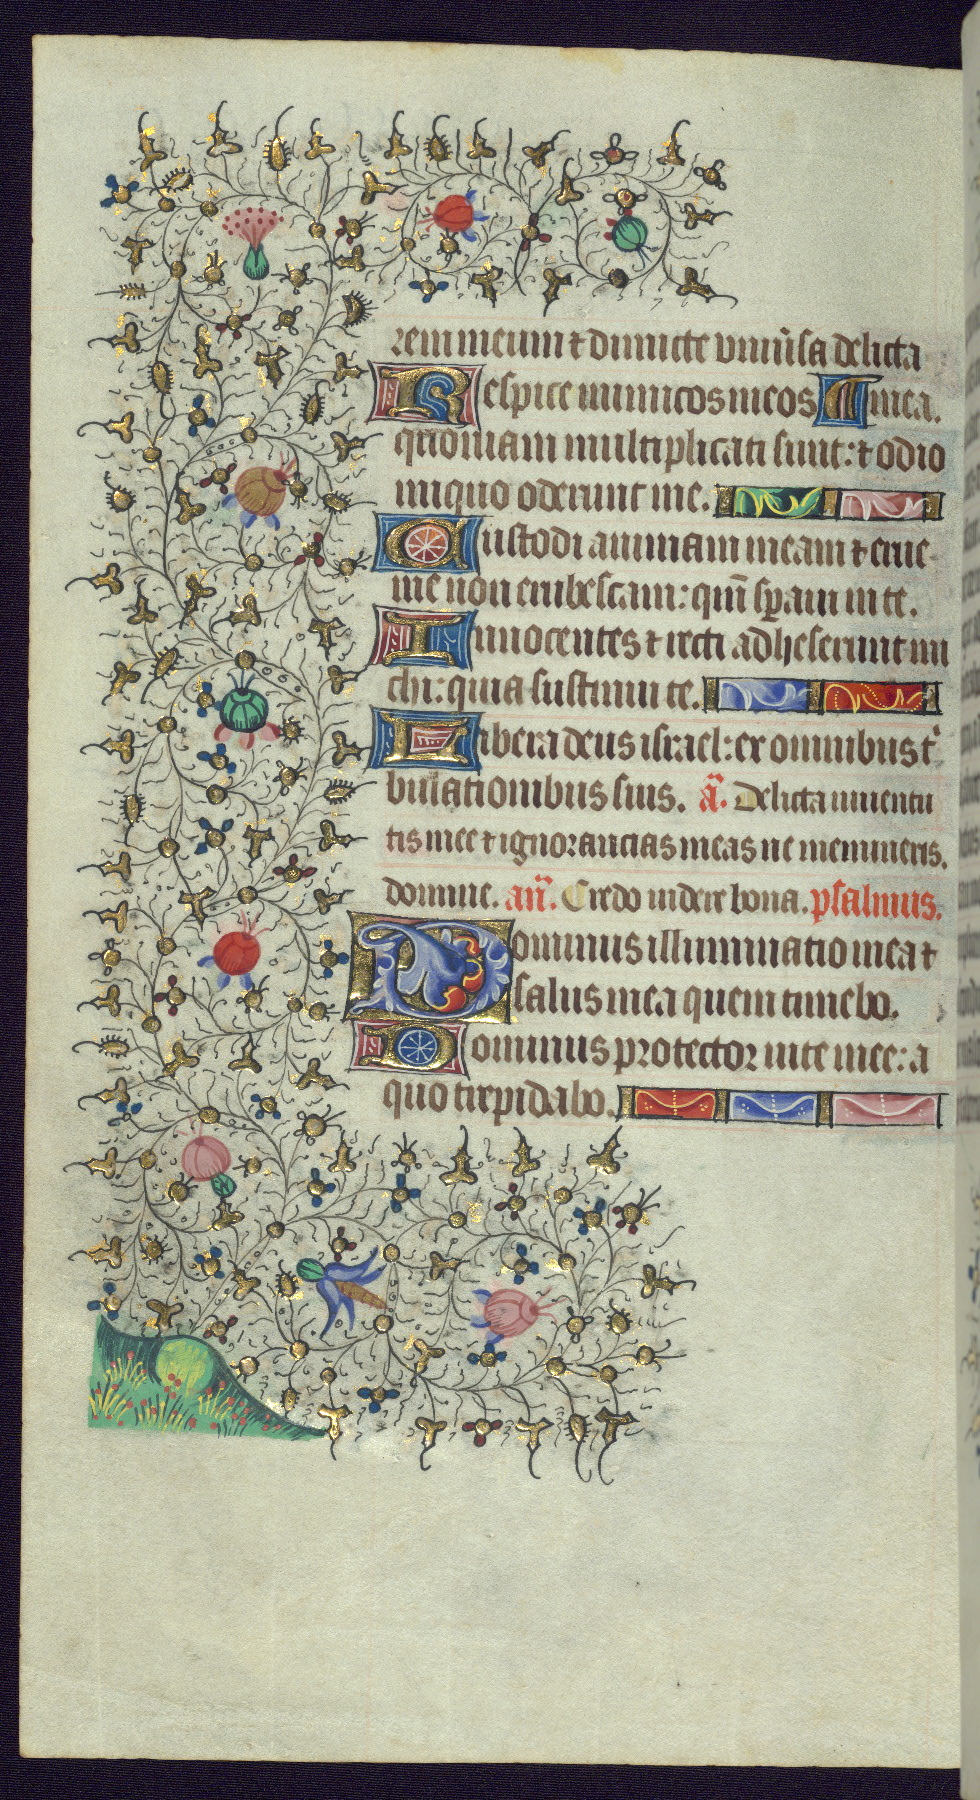 rem meum ⁊ dimicte vniũsa delicta
Respice inimicos meos ¶ mea.
quoniam multiplicati sunt: ⁊ odio
iniquo oderunt me.
Custodi animam meam ⁊ erue
me non erubescam: qm̃ sꝑaui in te.
Innocentes ⁊ recti adheserunt mi
chi: quia sustinui te.
Libera deus israel: ex omnibus tͥ
bulationibus suis. añ. Delicta iuuentu
tis mee ⁊ ignorancias meas ne memineris.
domine. añ. Credo videre bona. psalmus.
Dominus illuminatio mea ⁊
salus mea quem timebo.
Dominus protector uite mee: a
quo trepidabo.